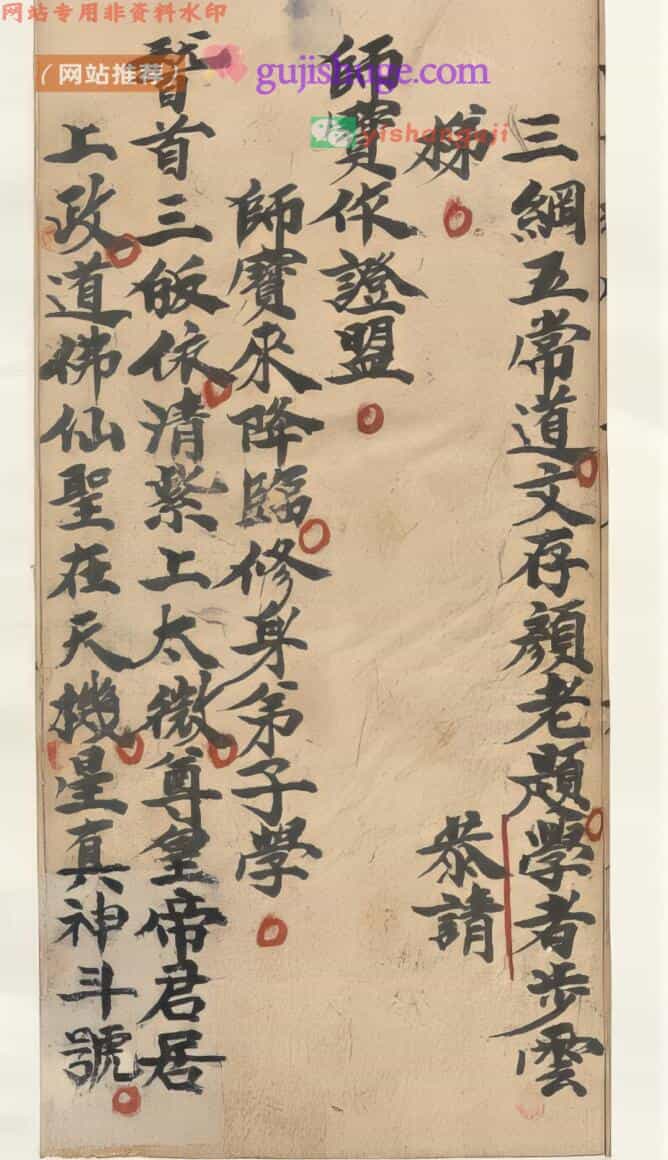 网站专用非资料水印
（网站推荐） gujishuge.com
yishanguji
三綱五常道文存顏老題學者步雲
梯 恭請
師寶作證盟
師寶來降臨修身弟子學
首三皈依清紫上太微尊皇帝君居
上政道佛仙聖在天機星真神斗號